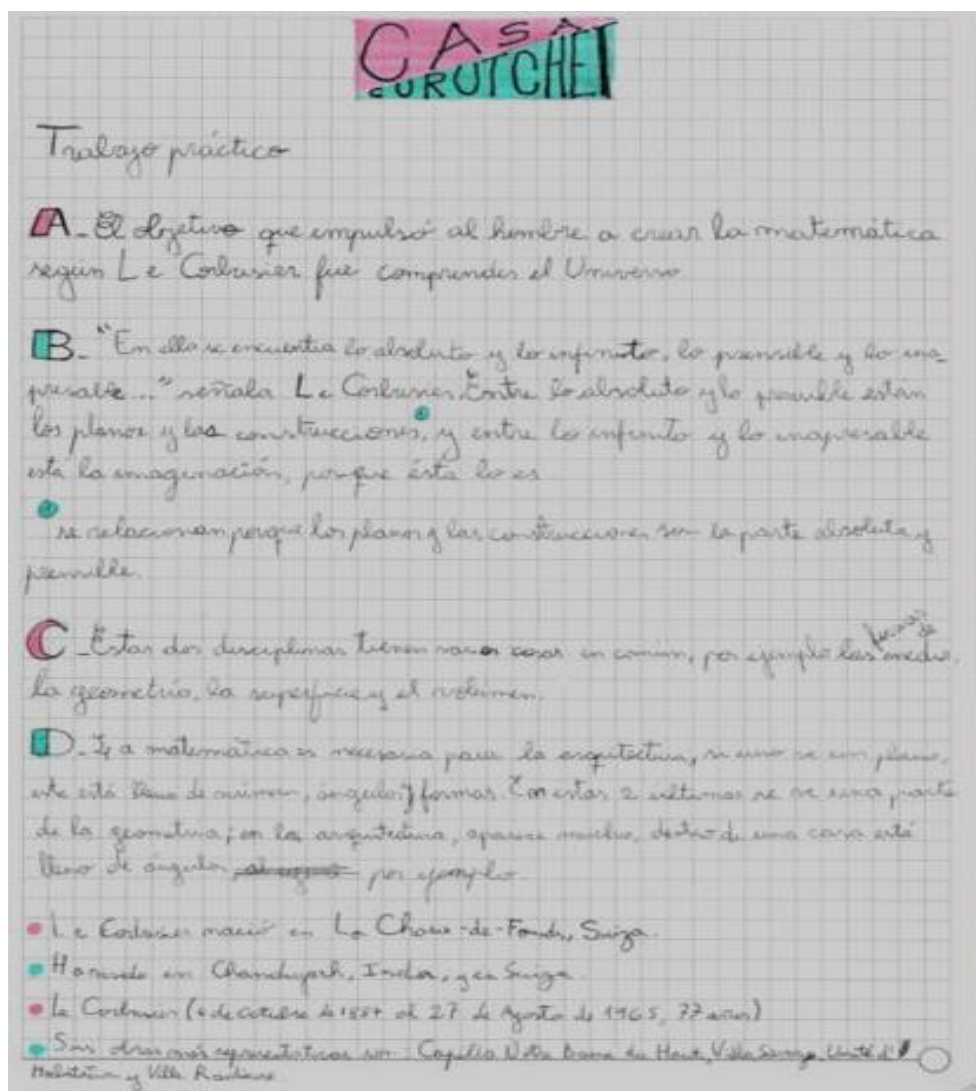 CASA
CURUTCHET
Trabajo práctico
A - El objetivo que impulsó al hombre a crear la matemática
según Le Corbusier fue comprender el Universo
B - "En ella se encuentra lo absoluto y lo infinito, lo prensible y lo ina-
prensable..." señala Le Corbusier. Entre lo absoluto y lo prensible están
los planos y las construcciones, y entre lo infinito y lo inapresable
está la imaginación, porque ésta lo es
se relacionan porque los planos y las construcciones son la parte absoluta y
prensible.
C - Estas dos disciplinas tienen varias cosas en común, por ejemplo las formas de medir,
la geometría, la superficie y el volumen.
D - La matemática es necesaria para la arquitectura, si uno ve un plano,
este está lleno de números, ángulos y formas. En estas 2 últimas se ve una parte
de la geometría; en la arquitectura, aparece mucho, dentro de una casa está
lleno de ángulos por ejemplo
Le Corbusier nació en La Chaux-de-Fonds, Suiza.
Ha vivido en Chandigarh, India, y en Suiza.
Le Corbusier (6 de octubre de 1887 al 27 de Agosto de 1965, 77 años)
Sus obras más representativas son: Capilla Notre Dame du Haut, Villa Savoye, Unité d'
Habitation y Ville Radieuse.